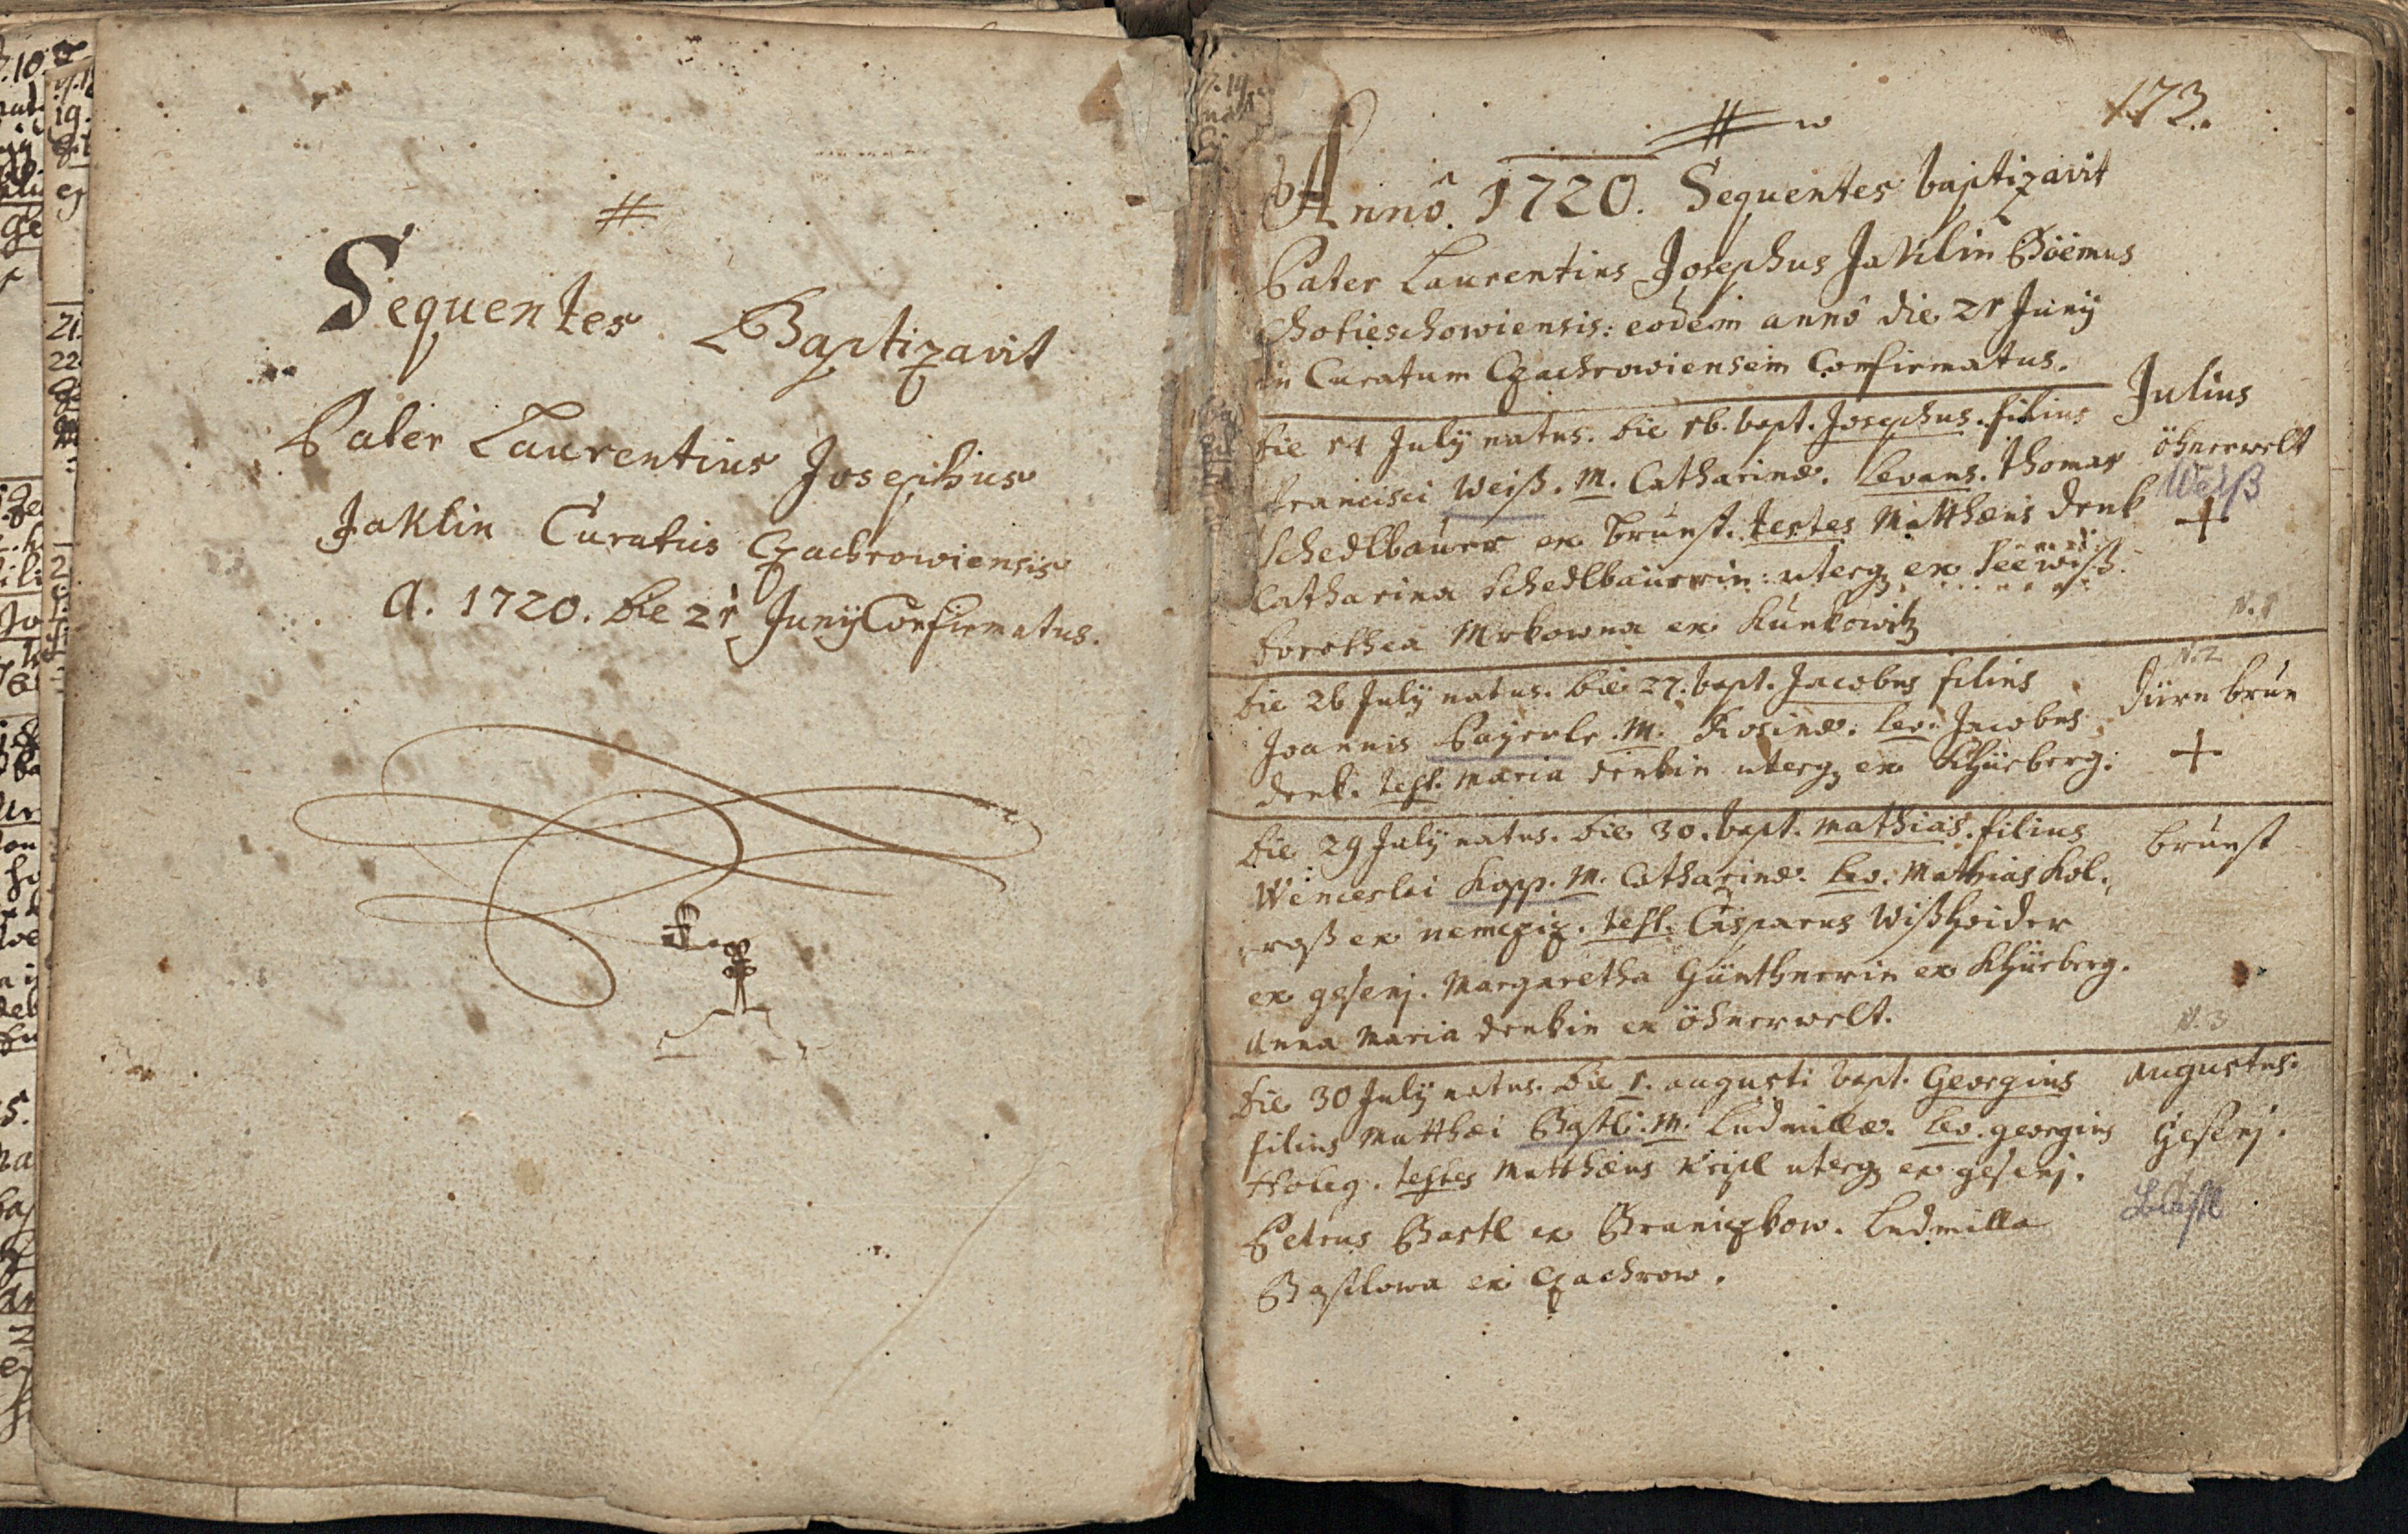 #
Sequentes Baptizavit
Pater Laurentius Josephus
Jaklin Curatus Czachrowiensis
A. 1720. die 21 Junÿ Confirmatus.
173.
Annô 1720. Sequentes baptizavit
Pater Laurentius Josephus Jaklin Boëmus
Chotieschowiensis: eodem annô die 21 Junÿ
in Curatum Czachrowiensem Confirmatus.
Julius
die 14 Julÿ natus. die 16. bapt. Josephus. filius
öhnerwelt
Francisci Weiß. M. Catharinæ. Levans. Thomas
Weiß
Schedlbauer ex Brunst. testes Matthæus Denk
+
Catharina Schedlbauerin: uterq ex Seewiß.
Dorothea Mrkowna ex Kunkowitz
N. 1
N. 2
die 26 Julÿ natus. die 27. bapt. Jacobus filius
dürn brun
Joannis Payerle. M. Rosinæ. lev. Jacobus
+
Denk. test. Maria Denkin uterq ex Khürberg.
die 29 Julÿ natus. die 30. bapt. Mathias. filius
brunst
Wenceslai Kopp. M. Catharinæ. lev. Mathias Kol.
roß ex nemcziz. test. Casparus Wißheider
ex gesenj. Margaretha Günthnerin ex Khürberg.
Anna Maria Denkin ex öhnerwelt.
N. 3
die 30 Julÿ natus. die 1. augusti bapt. Georgius
Augustus.
filius Matthæi Bastl. M. Ludmillæ. lev. georgius
Gesenj.
testes Matthæus uterq ex gesenj.
Petrus Bastl ex Braniczkow. Ludmilla
Bastlowa ex Czachrow.